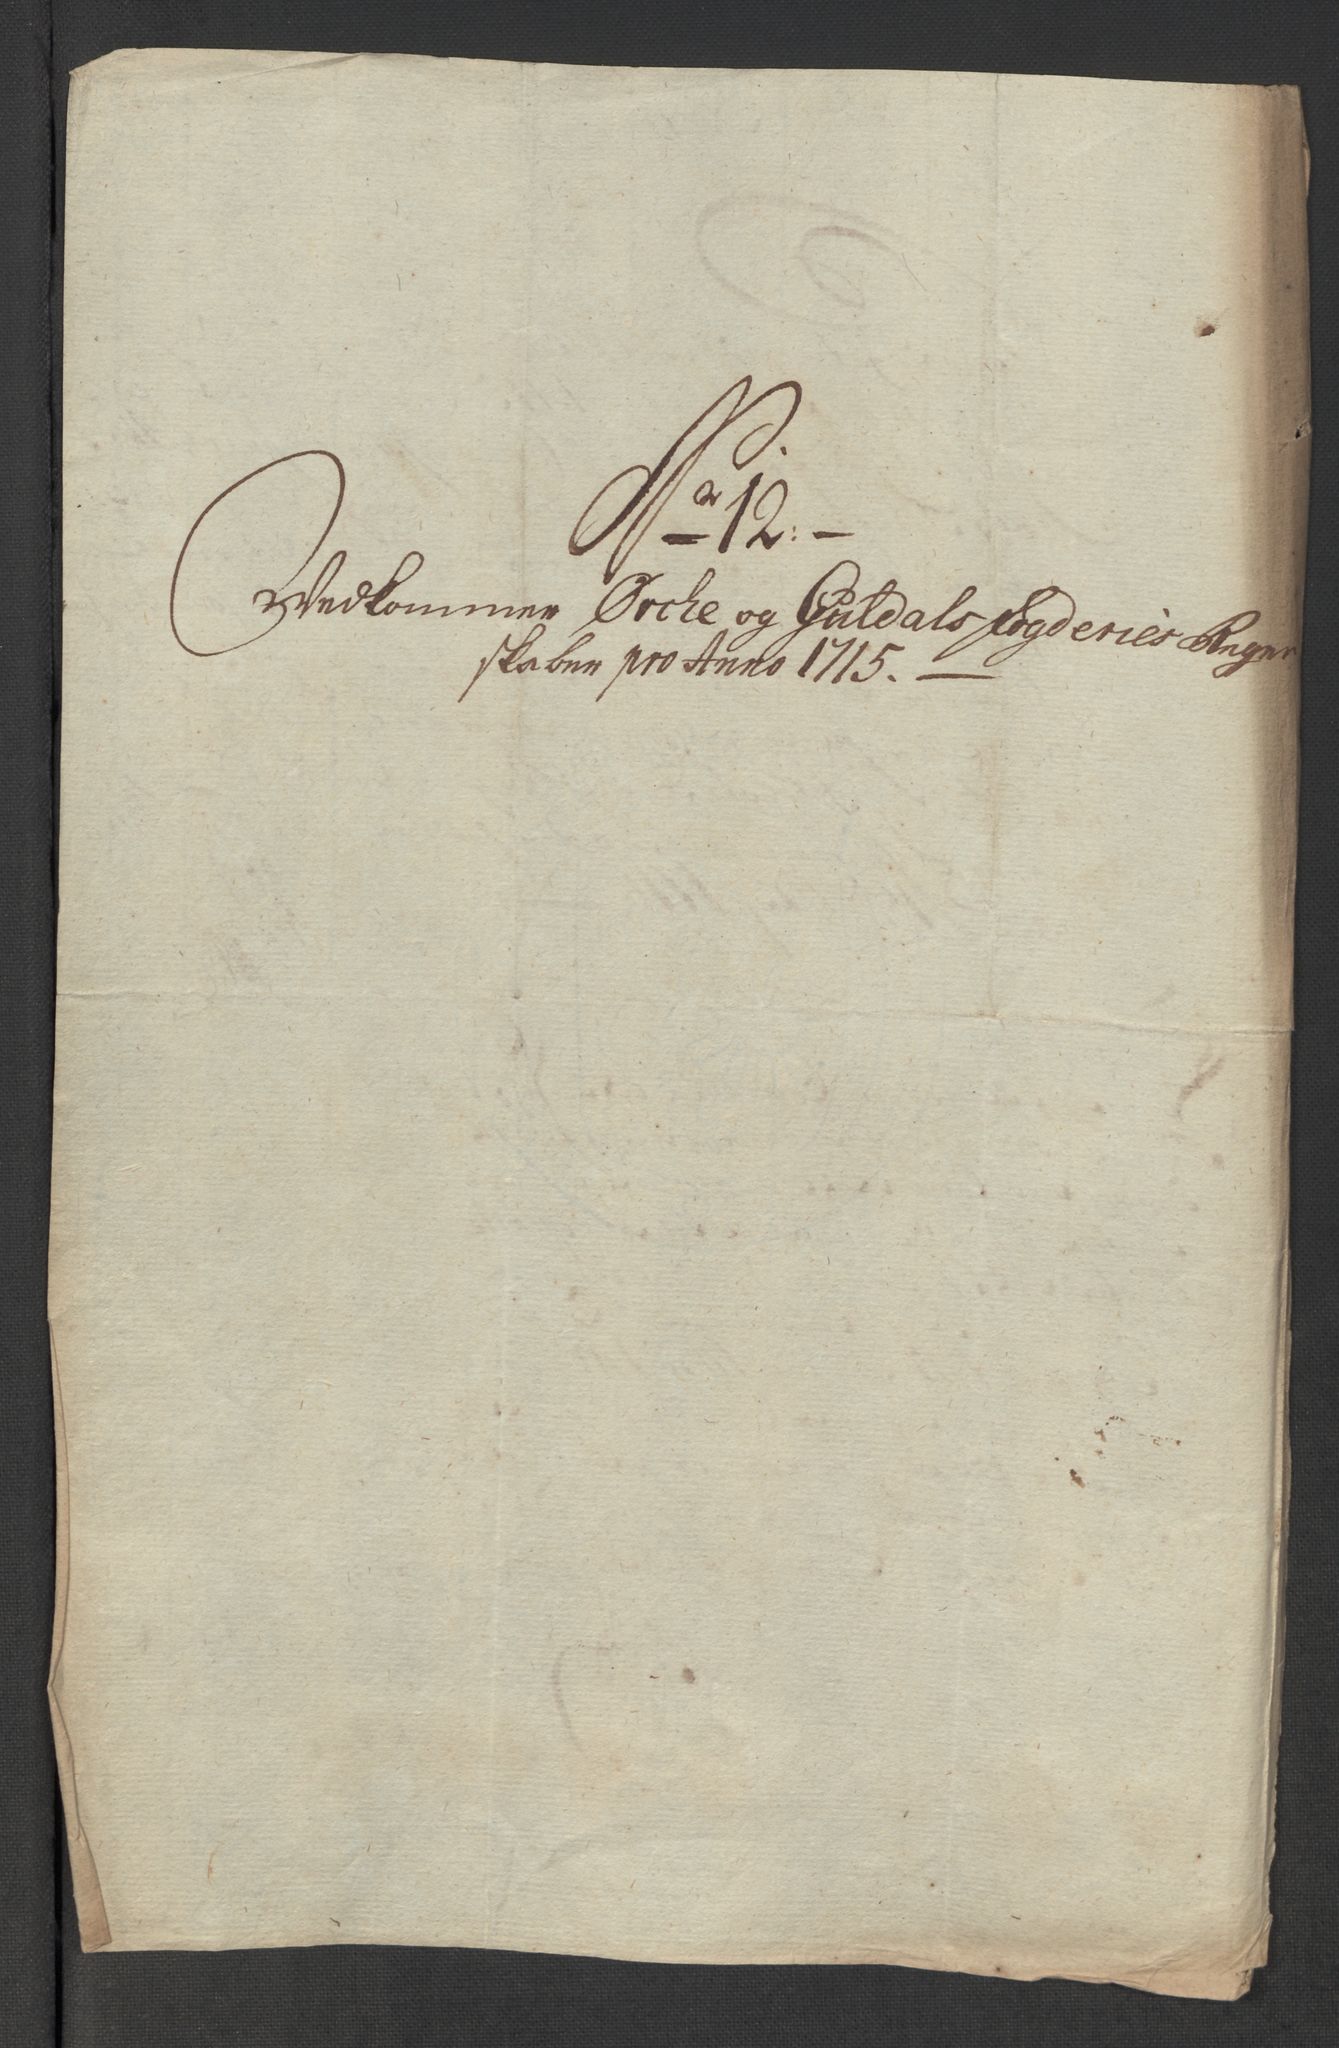 No 12.
Vedkommer Orche og Guldals fogderies Regen
skaber pro Anno 1715.